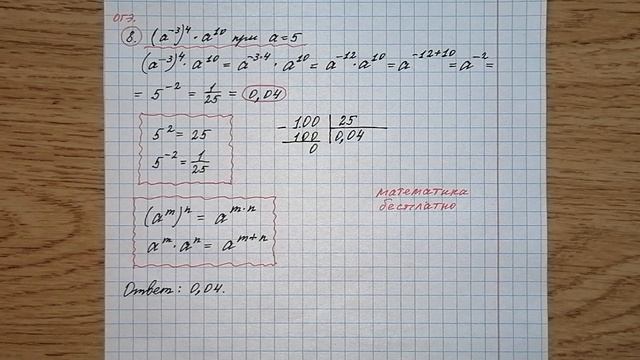 ОГЭ.
8. (a⁻³)⁴ · a¹⁰ при a = 5
(a⁻³)⁴ · a¹⁰ = a⁻³·⁴ · a¹⁰ = a⁻¹² · a¹⁰ = a⁻¹²⁺¹⁰ = a⁻² =
= 5⁻² = 1/25 = 0,04
5² = 25
5⁻² = 1/25
− 1.00 | 25
100 | 0,04
0
математика
бесплатно
(aᵐ)ⁿ = aᵐ·ⁿ
aᵐ · aⁿ = aᵐ⁺ⁿ
Ответ: 0,04.